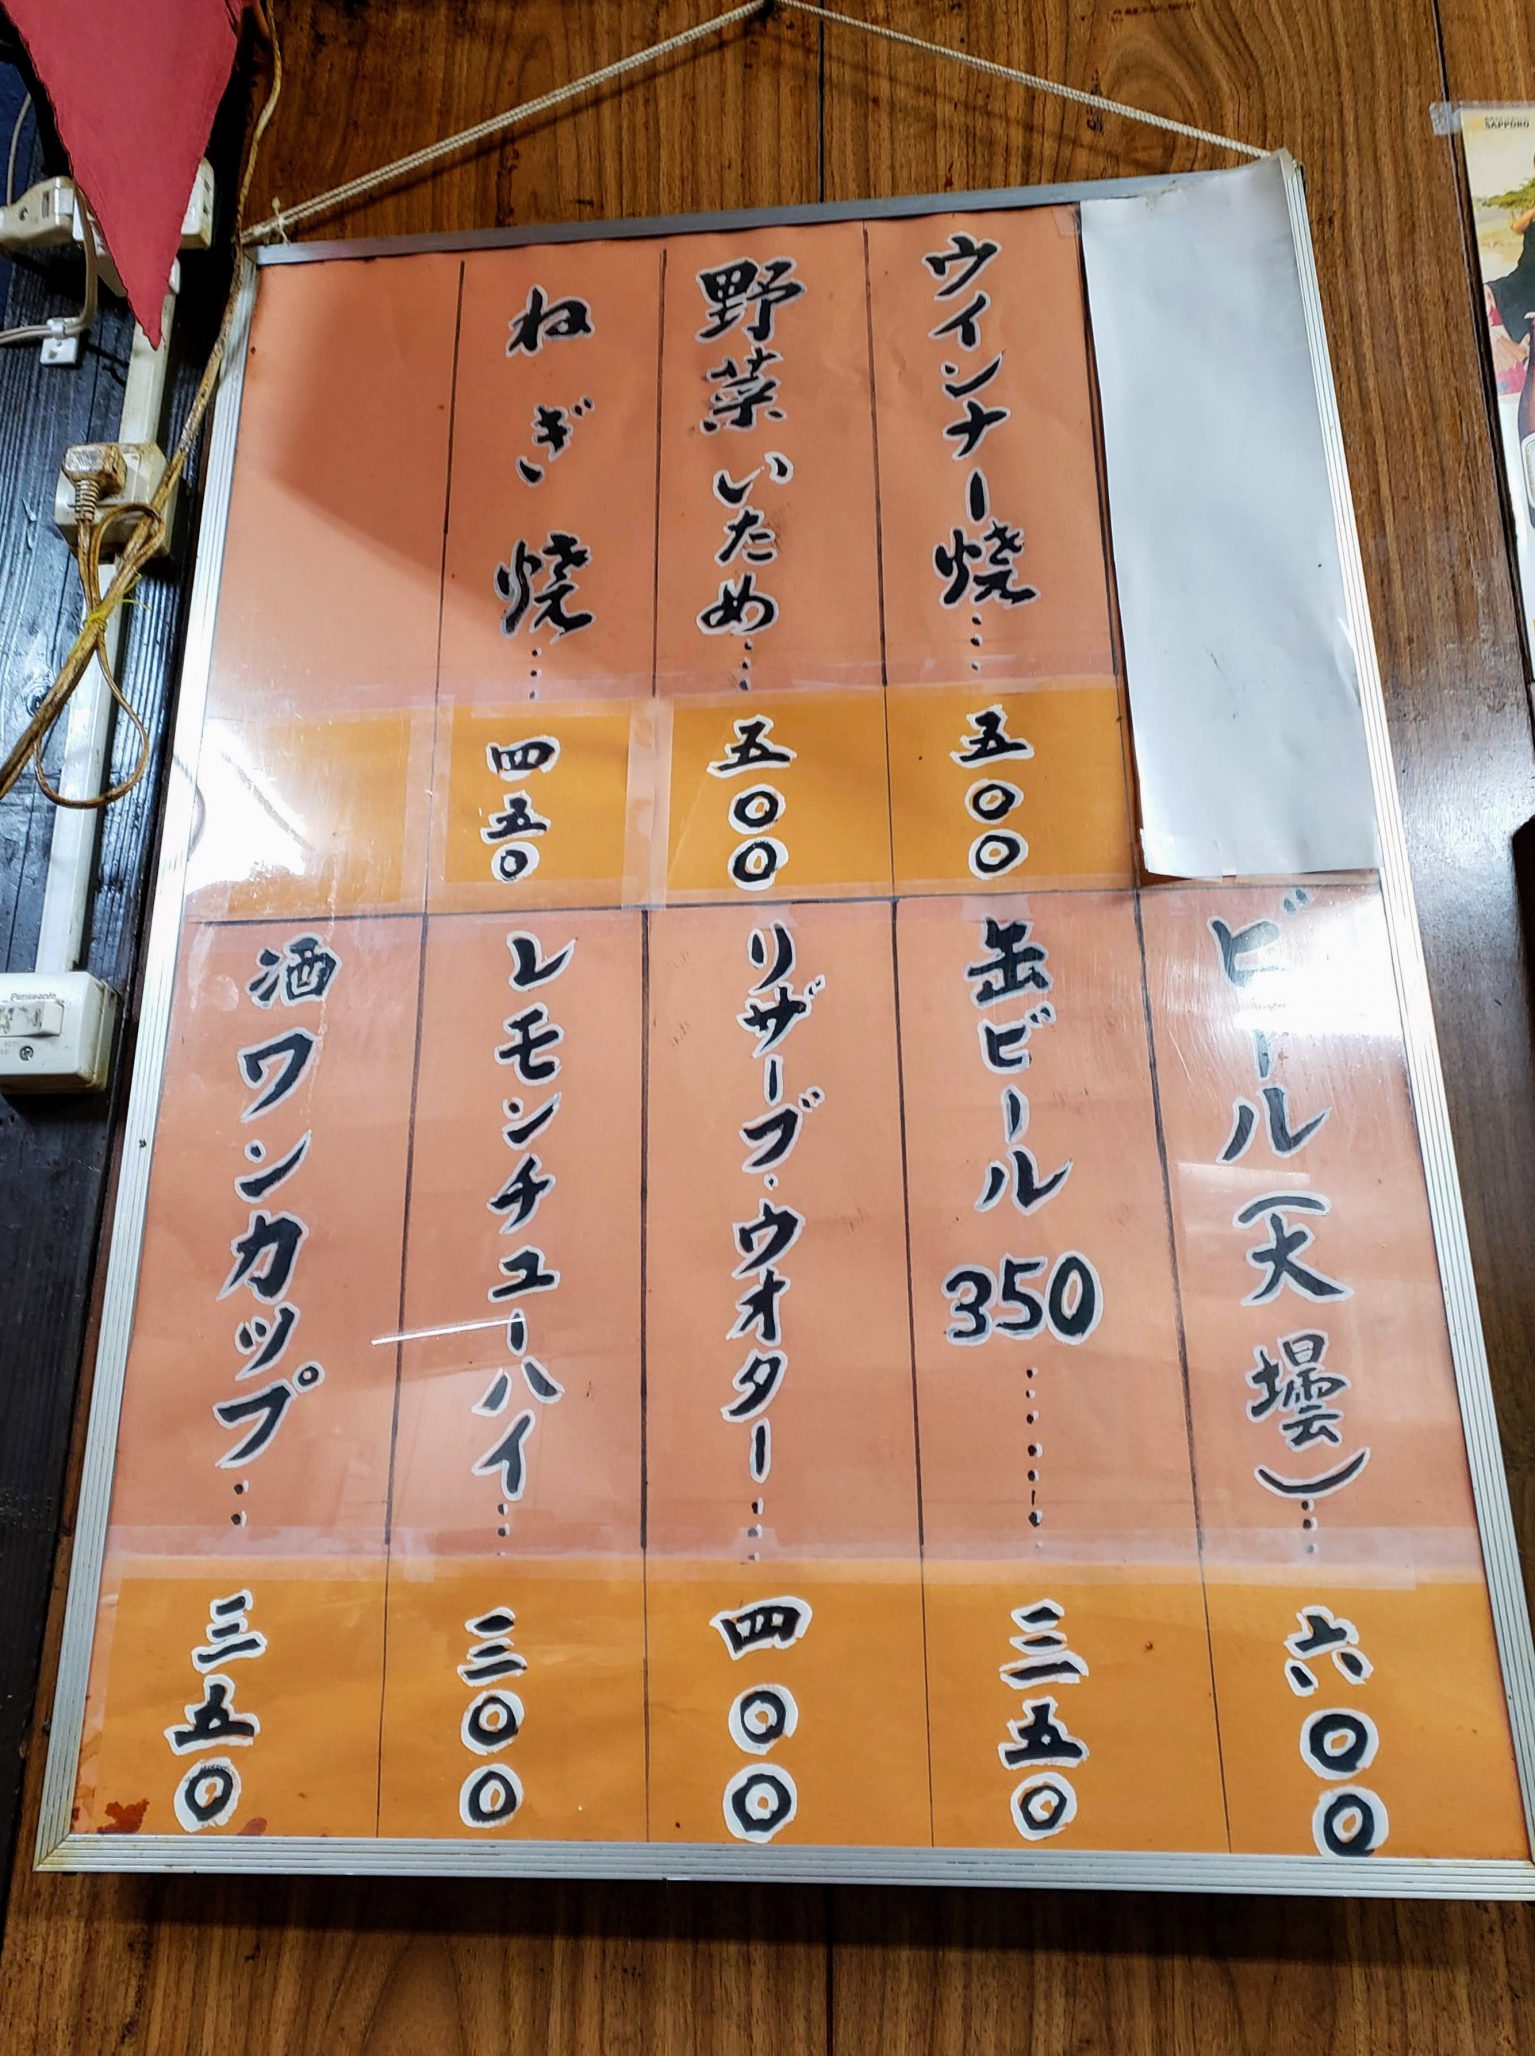 ウインナー焼……五〇〇
野菜いため……五〇〇
ねぎ焼……四五〇
ビール(大壜)……六〇〇
缶ビール350………三五〇
リザーブ・ウオター……四〇〇
レモンチューハイ……三〇〇
酒ワンカップ……三五〇
SAPPORO
Panasonic